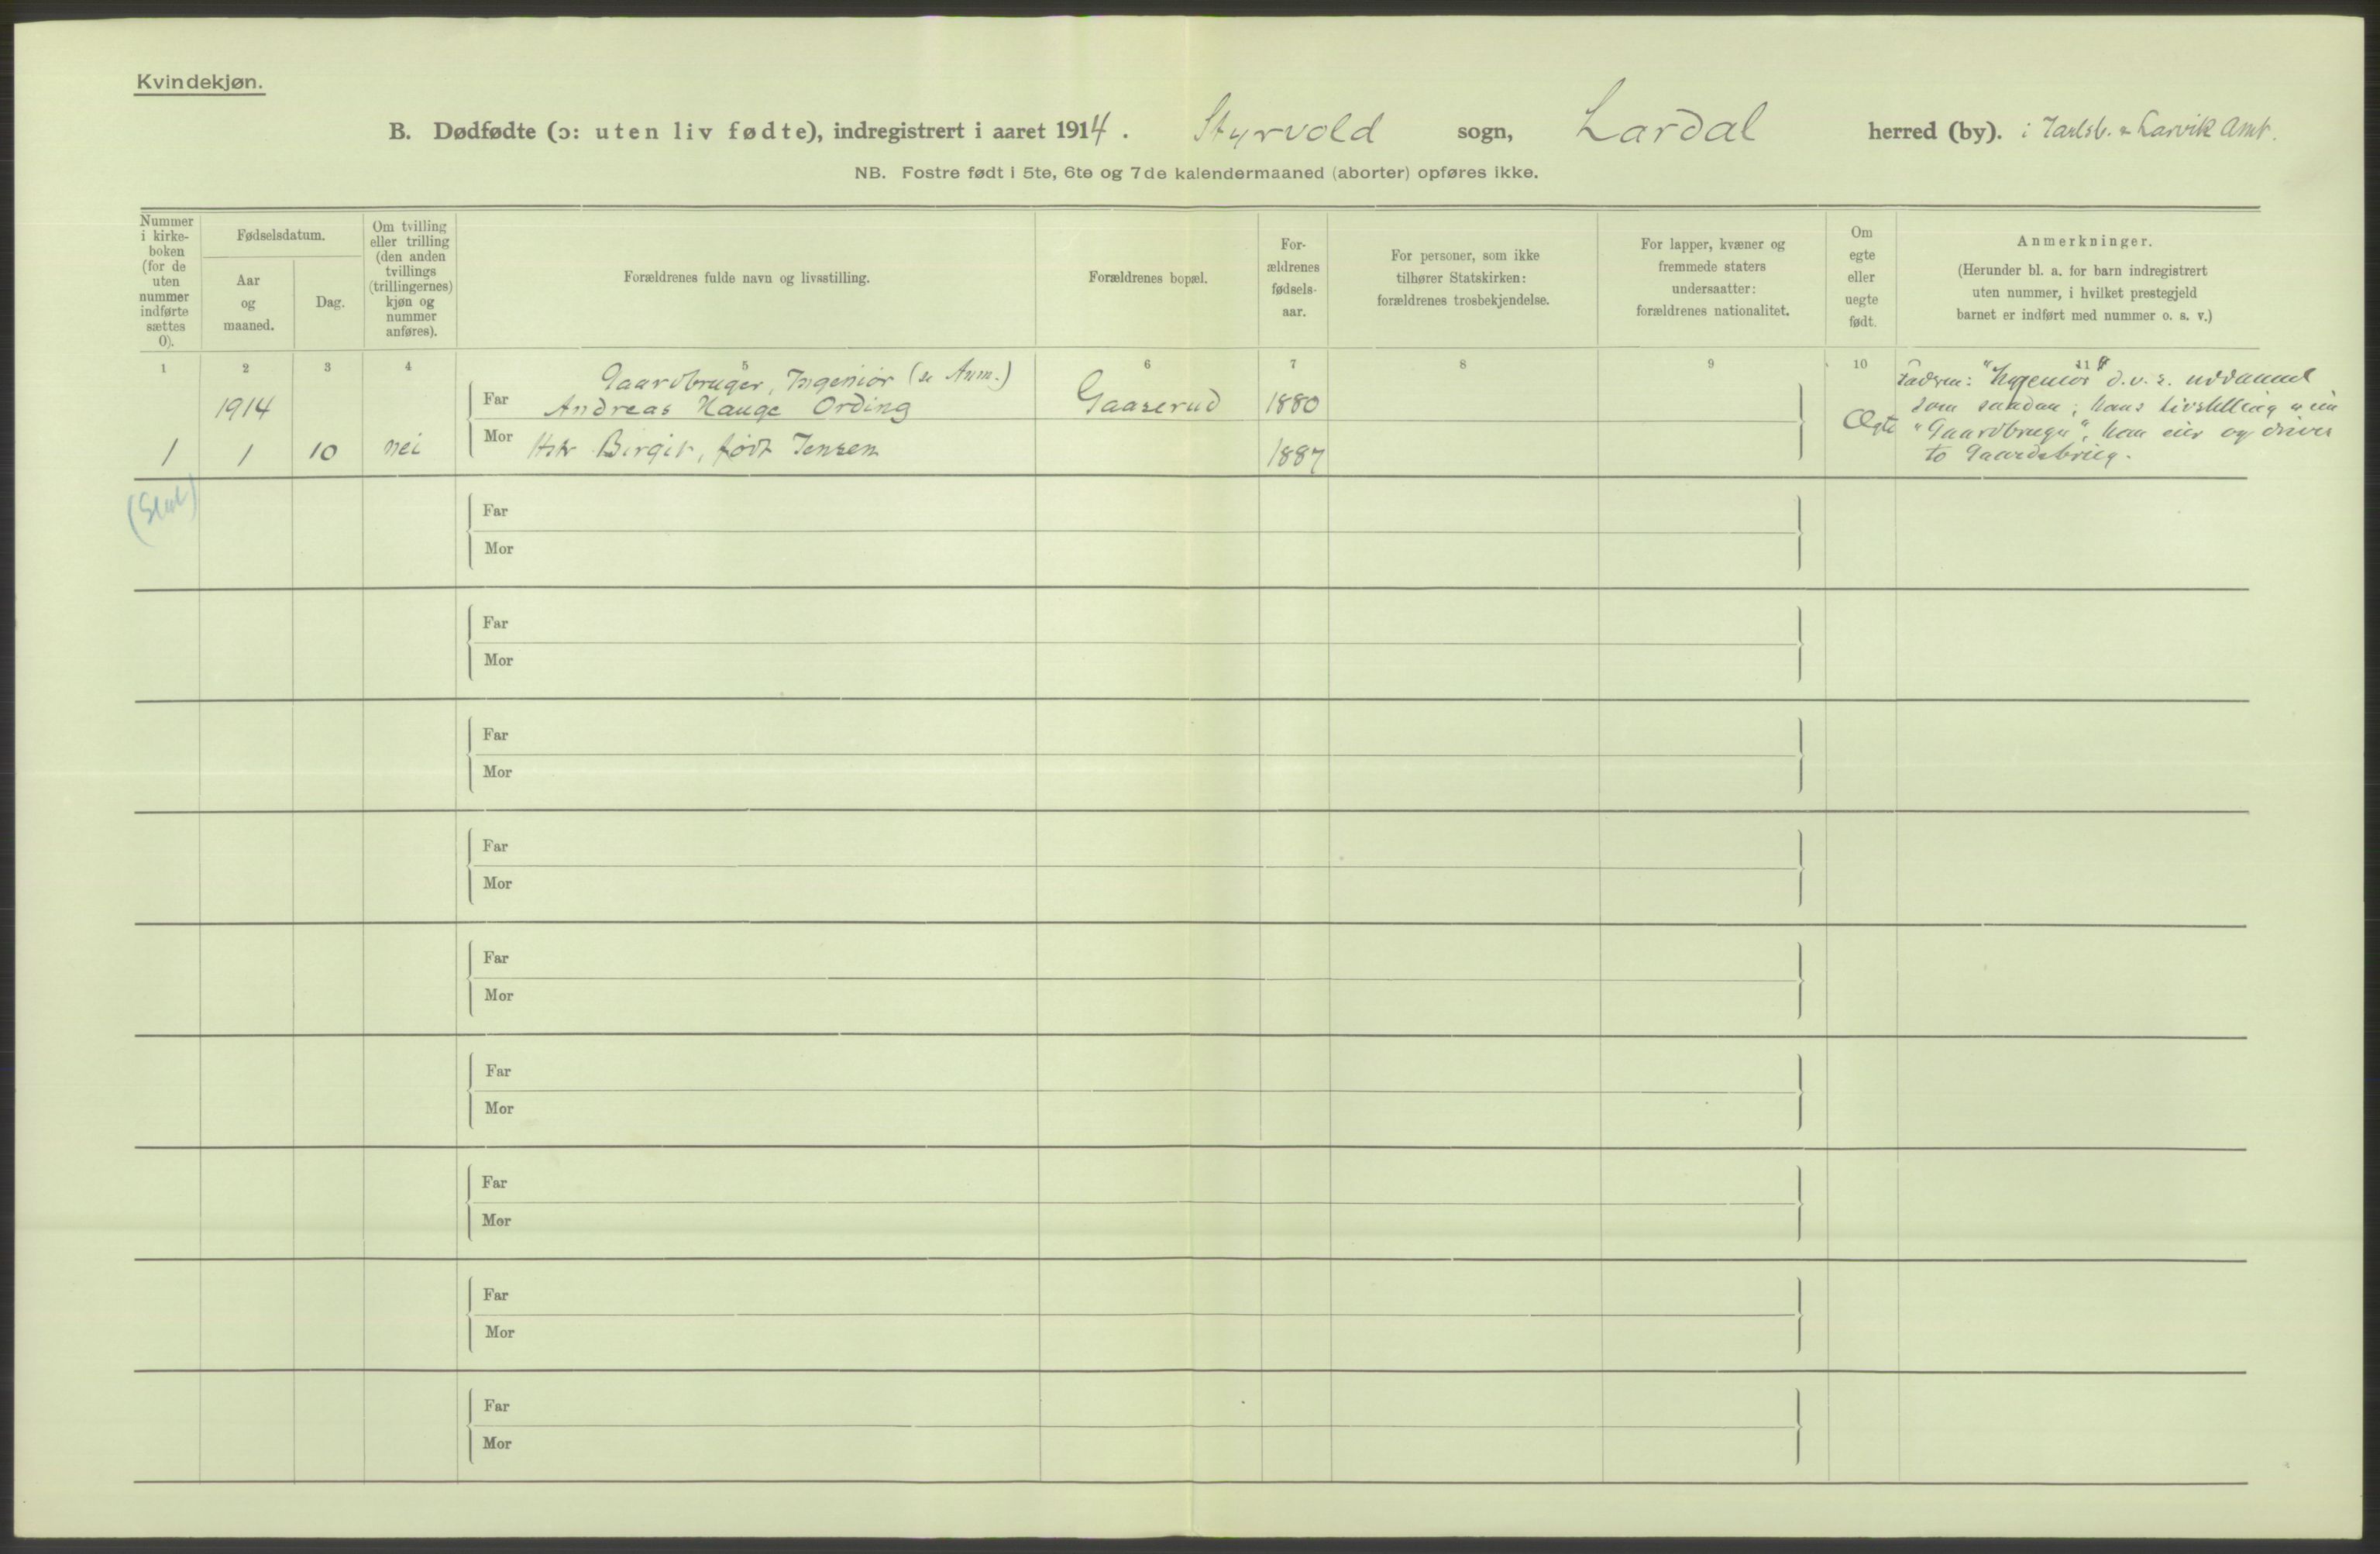 Kvindekjøn.
B. Dødfødte (ɔ: uten liv fødte), indregistrert i aaret 1914. Styrvold sogn, Lardal herred (by). i Jarlsb. & Larvik Amt.
NB. Fostre født i 5te, 6te og 7de kalendermaaned (aborter) opføres ikke.
Nummer
i kirke-
boken
(for de
uten
nummer
indførte
sættes
0).
Fødselsdatum.
Aar
og
maaned.
Dag.
Om tvilling
eller trilling
(den anden
tvillings
(trillingernes)
kjøn og
nummer
anføres).
Forældrenes fulde navn og livsstilling.
Forældrenes bopæl.
For-
ældrenes
fødsels-
aar.
For personer, som ikke
tilhører Statskirken:
forældrenes trosbekjendelse.
For lapper, kvæner og
fremmede staters
undersaatter:
forældrenes nationalitet.
Om
egte
eller
uegte
født.
Anmerkninger.
(Herunder bl. a. for barn indregistrert
uten nummer, i hvilket prestegjeld
barnet er indført med nummer o. s. v.)
1 2 3 4 5 6 7 8 9 10 11
1914
1 1 10 nei
Gaardbruger, Ingeniør (se Anm.)
Far Andreas Hauge Ording Gaaserud 1880
Mor Hstr Birgit, født Jensen 1887
Ægte
Faderen: "Ingeniør" d.v.s. uddannet
som saadan; hans Livstilling er
"Gaardbruger", han eier og driver
to Gaardsbrug.
(Slut)
Far
Mor
Far
Mor
Far
Mor
Far
Mor
Far
Mor
Far
Mor
Far
Mor
Far
Mor
Far
Mor